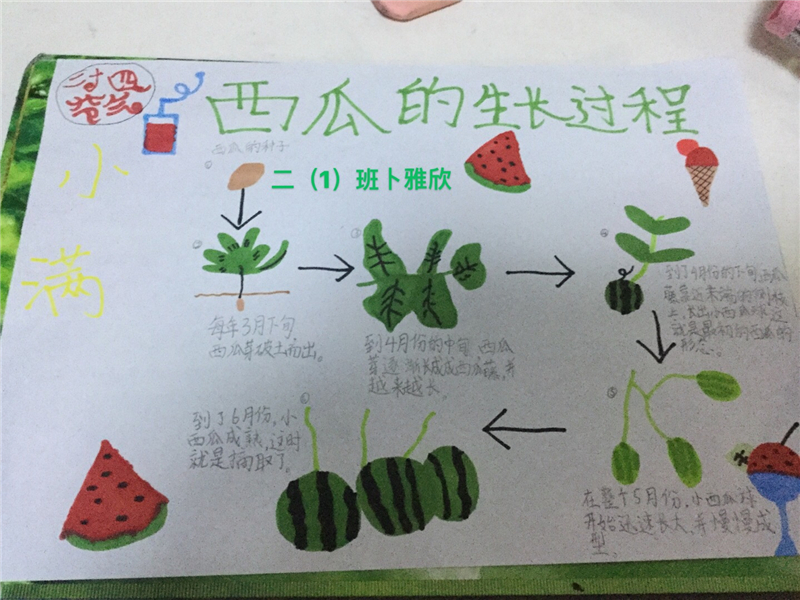 二十四节气
西瓜的生长过程
小满
西瓜的种子
二（1）班卜雅欣
①
②
每年3月下旬
西瓜芽破土而出。
③
到4月份的中旬，西瓜
芽逐渐长成成西瓜藤，并
越来越长。
④
到了4月份的下旬，西瓜
上，长出小西瓜球，这
就是最初的西瓜的
形态。
⑤
在整个5月份，小西瓜球
开始迅速长大，并慢慢成
型。
⑥
到了6月份，小
西瓜成熟，这时
就是摘取了。